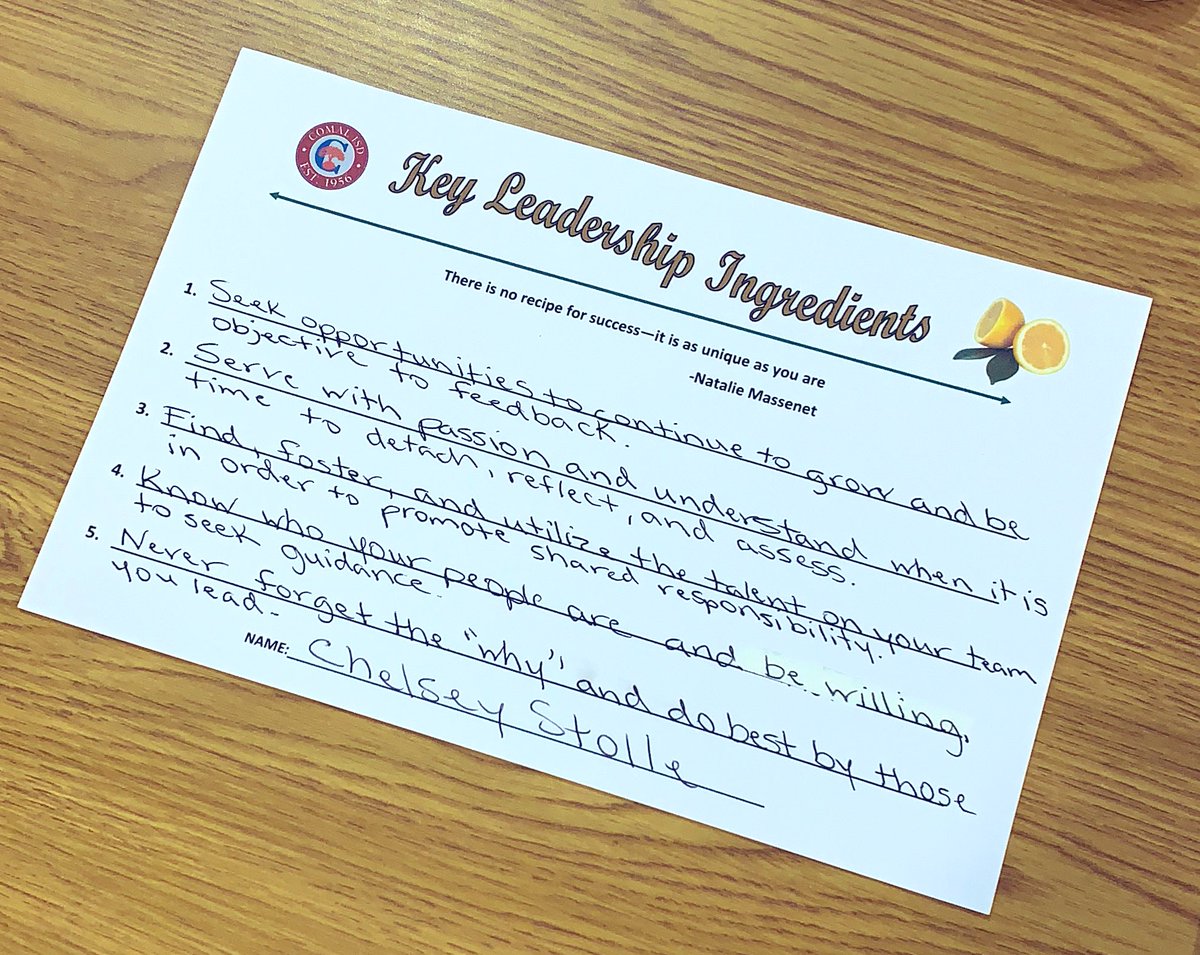 COMAL ISD
EST. 1956
Key Leadership Ingredients
There is no recipe for success—it is as unique as you are
-Natalie Massenet
1. Seek opportunities to continue to grow and be
objective to feedback.
2. Serve with passion and understand when it is
time to detach, reflect, and assess.
3. Find, foster, and utilize the talent on your team
in order to promote shared responsibility.
4. Know who your people are and be willing
to seek guidance.
5. Never forget the "why" and do best by those
you lead.
NAME: Chelsey Stolle